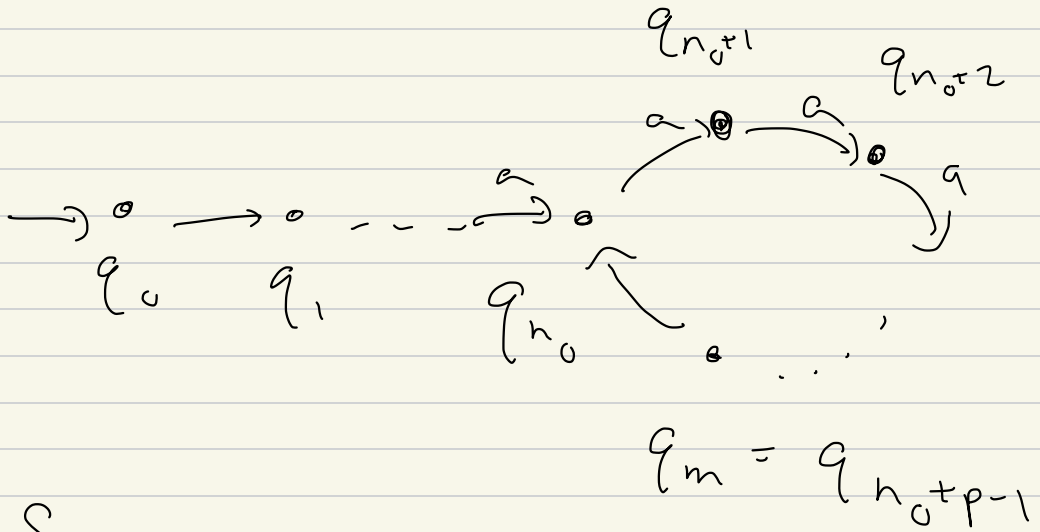 q_{n_0+1}
q_{n_0+2}
a a
a a
q_0 q_1 q_{n_0}
q_m = q_{n_0+p-1}